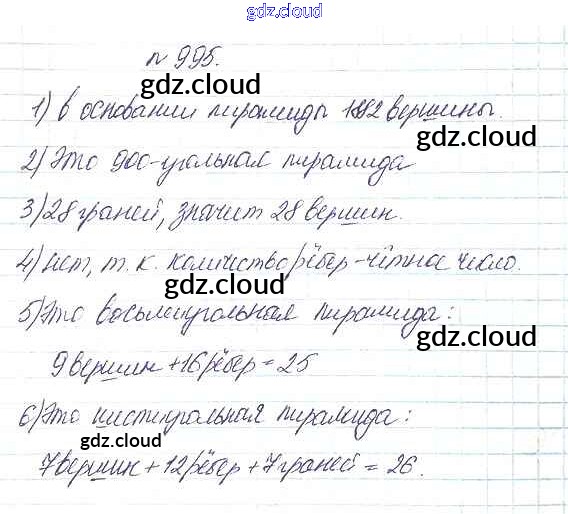 gdz.cloud
gdz.cloud
№ 995.
gdz.cloud
1) В основании пирамиды 1892 вершины.
gdz.cloud
2) Это 900-угольная пирамида
gdz.cloud
3) 28 граней, значит 28 вершин.
4) нет, т. к. количество рёбер - чётное число.
gdz.cloud
5) Это восьмиугольная пирамида:
gdz.cloud
9 вершин + 16 рёбер = 25
6) Это шестиугольная пирамида:
gdz.cloud
7 вершин + 12 рёбер + 7 граней = 26.